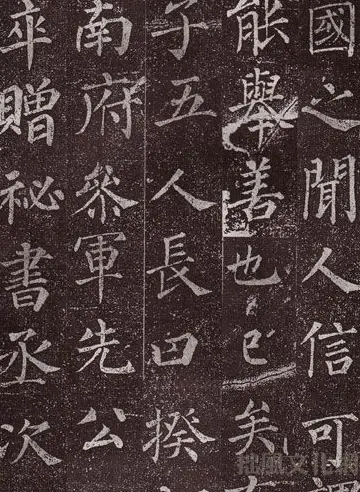 國之聞人信可謂
能舉善也已矣有
子五人長曰揆
南府參軍先公
卒贈祕書丞次